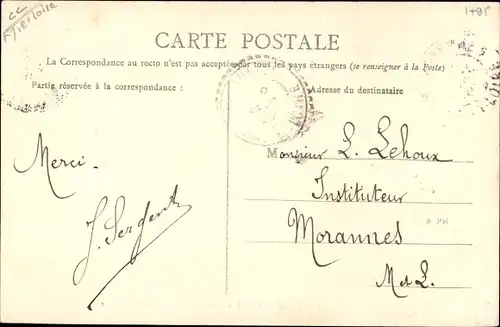 CARTE POSTALE
La Correspondance au recto n'est pas acceptée par tous les pays étrangers (se renseigner à la Poste)
Partie réservée à la correspondance :
Adresse du destinataire
Merci.
J. Sergent
Monsieur L. Lehoux
Instituteur
Morannes
M et L.